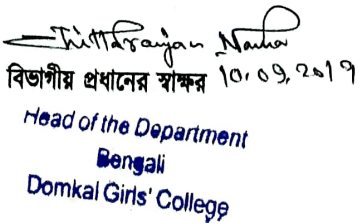 Chittaranjan Naha
বিভাগীয় প্রধানের স্বাক্ষর 10.09.2019
Head of the Department
Bengali
Domkal Girls' College